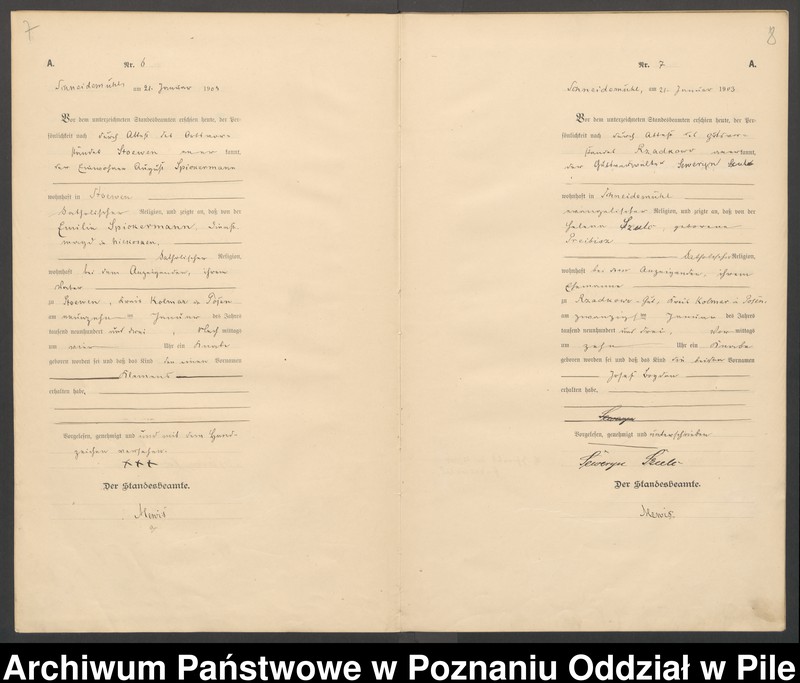 7
A.
Nr. 6
Schneidemühl, am 21. Januar 1903
Vor dem unterzeichneten Standesbeamten erschien heute, der Per-
sönlichkeit nach durch Attest des Ortsvor-
standes Stoewen aner kannt,
der Einwohner August Spickermann
wohnhaft in Stoewen
katholischer Religion, und zeigte an, daß von der
Emilie Spickermann, Dienst-
magd
katholischer Religion,
wohnhaft bei dem Anzeigenden, ihrem
Vater
zu Stoewen, Kreis Kolmar in Posen
am neunzehn ten Januar des Jahres
tausend neunhundert und drei, Nach mittags
um vier Uhr ein Knabe
geboren worden sei und daß das Kind den einen Vornamen
Klemens
erhalten habe.
Vorgelesen, genehmigt und mit dem Hand-
zeichen versehen.
+++
Der Standesbeamte.
Mewis
8
Nr. 7
A.
Schneidemühl, am 21. Januar 1903.
Vor dem unterzeichneten Standesbeamten erschien heute, der Per-
sönlichkeit nach durch Attest des Gutsvor-
standes Rzadkowo anerkannt,
der Gutsverwalter Seweryn Szulc
wohnhaft in Schneidemühl
evangelischer Religion, und zeigte an, daß von der
Helene Szulc, geborene
katholischer Religion,
wohnhaft bei dem Anzeigenden, ihrem
Ehemanne
zu Rzadkowo Gut, Kreis Kolmar in Posen
am zwanzig ten Januar des Jahres
tausend neunhundert und drei, Vor mittags
um zehn Uhr ein Knabe
geboren worden sei und daß das Kind die beiden Vornamen
Josef Bogdan
erhalten habe.
Seweryn
Vorgelesen, genehmigt und unterschrieben
Seweryn Szulc
Der Standesbeamte.
Mewis
Archiwum Państwowe w Poznaniu Oddział w Pile